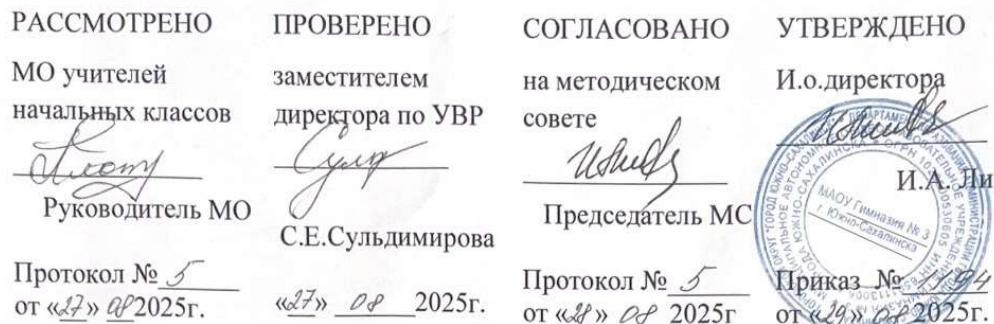 РАССМОТРЕНО
МО учителей
начальных классов
Руководитель МО
Протокол № 5
от «27» 08 2025г.
ПРОВЕРЕНО
заместителем
директора по УВР
С.Е.Сульдимирова
«27» 08 2025г.
СОГЛАСОВАНО
на методическом
совете
Председатель МС
Протокол № 5
от «28» 08 2025г
УТВЕРЖДЕНО
И.о.директора
И.А. Ли
Приказ №
от «29» 08 2025г.
МАОУ Гимназия № 3
г. Южно-Сахалинска